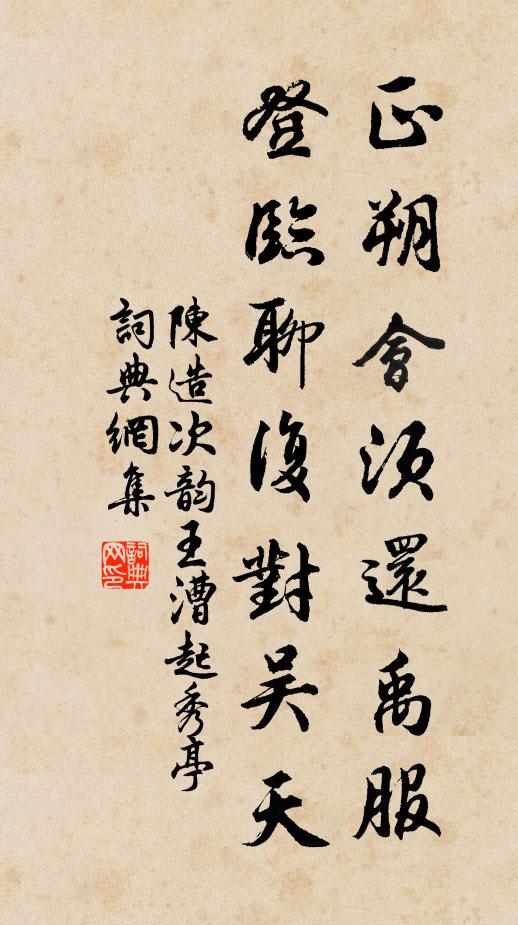 正朔會須還禹服
登臨聊復對吳天
陳造次韵王漕起秀亭
詞典網集
詞典网印